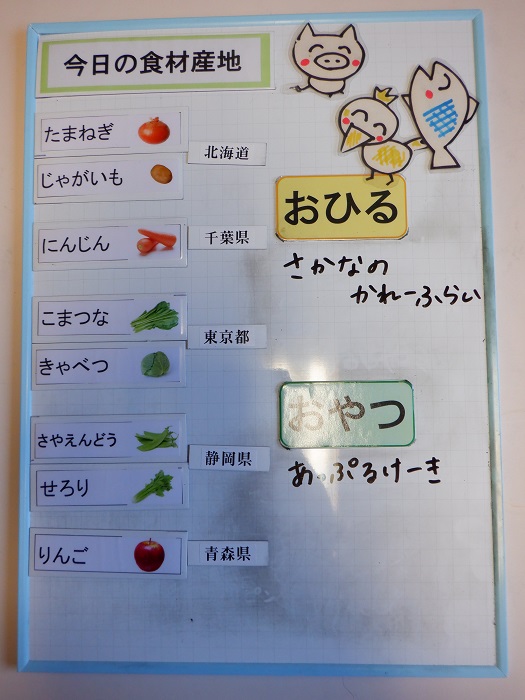 今日の食材産地
たまねぎ
じゃがいも
北海道
にんじん
千葉県
こまつな
きゃべつ
東京都
さやえんどう
せろり
静岡県
りんご
青森県
おひる
さかなの
かれーふらい
おやつ
あっぷるけーき